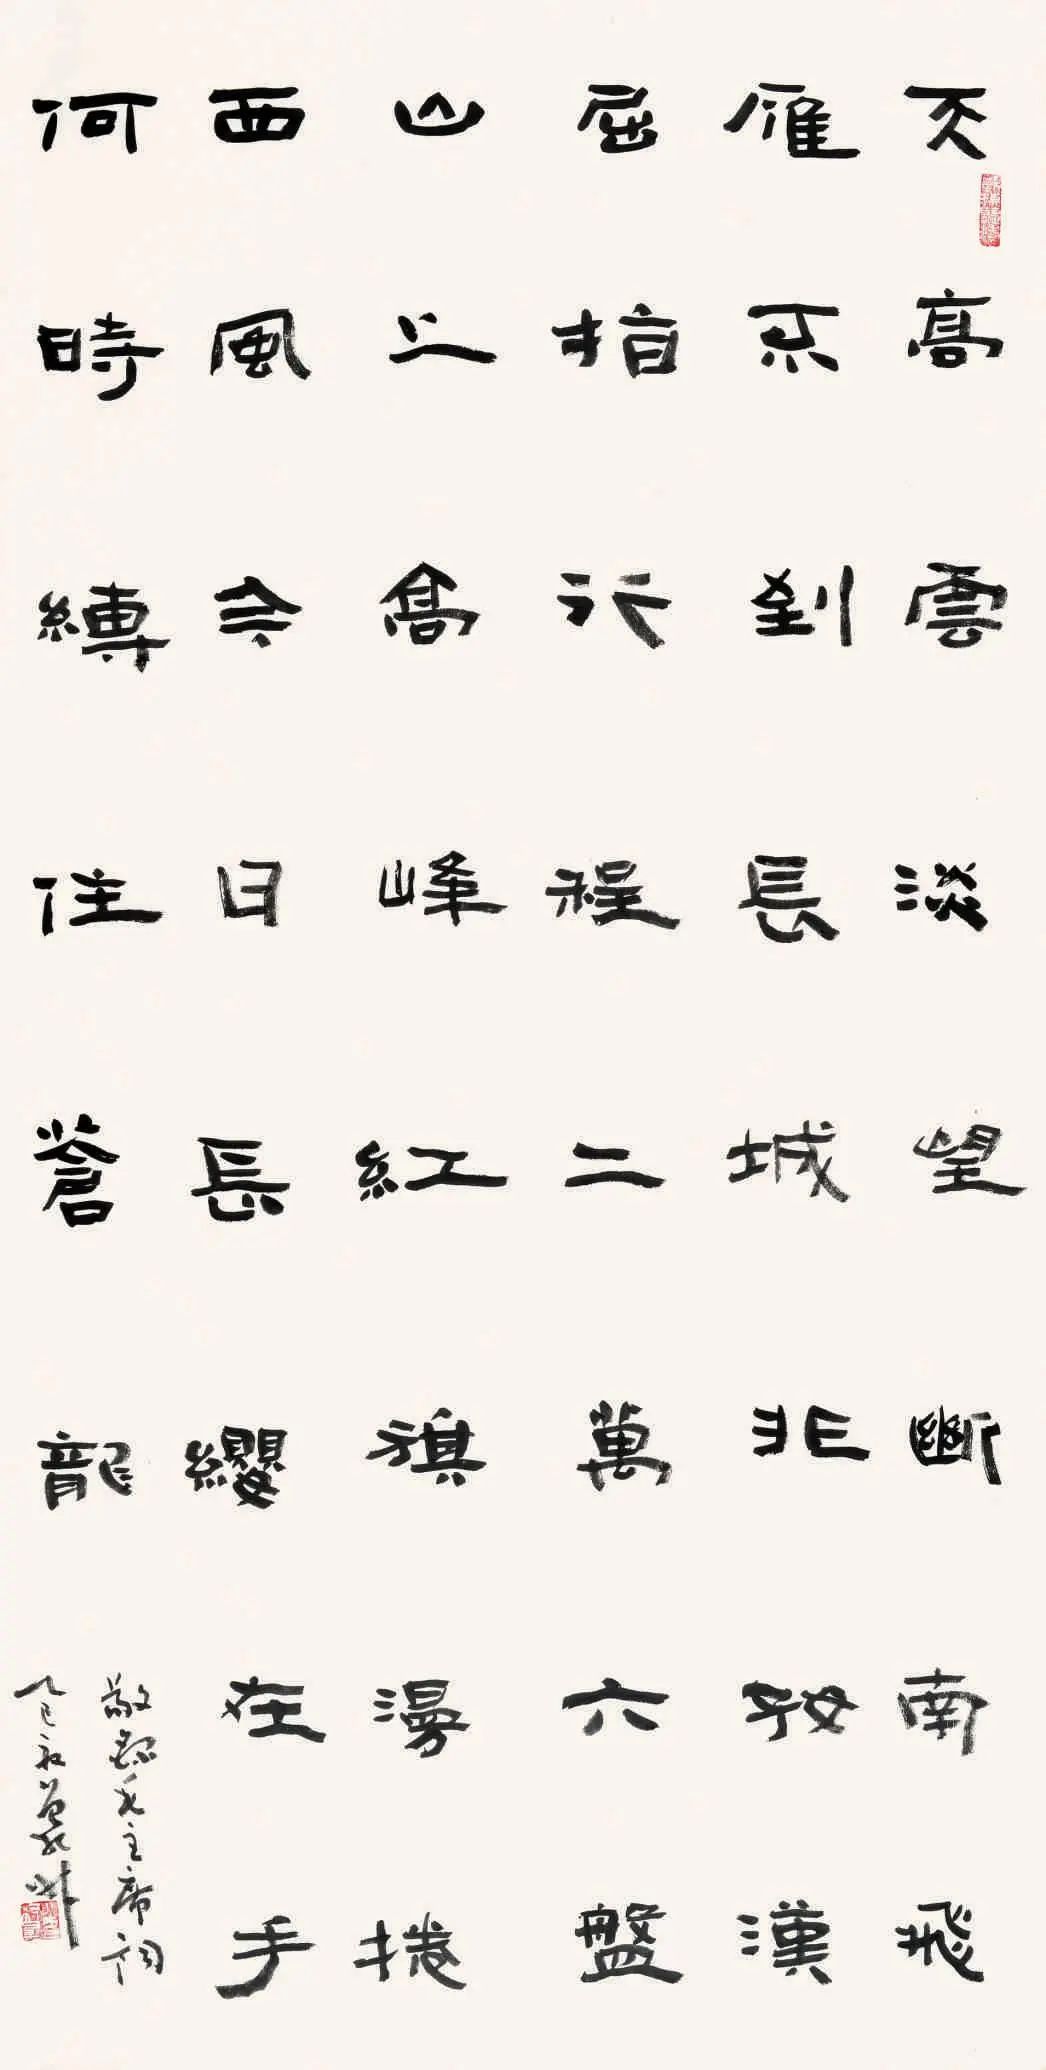 天高雲淡望斷南飛
雁不到長城非好漢
屈指行程二萬六盤
山上高峰紅旗漫捲
西風今日長纓在手
何時縛住蒼龍
敬録毛主席詞
乙巳初夏